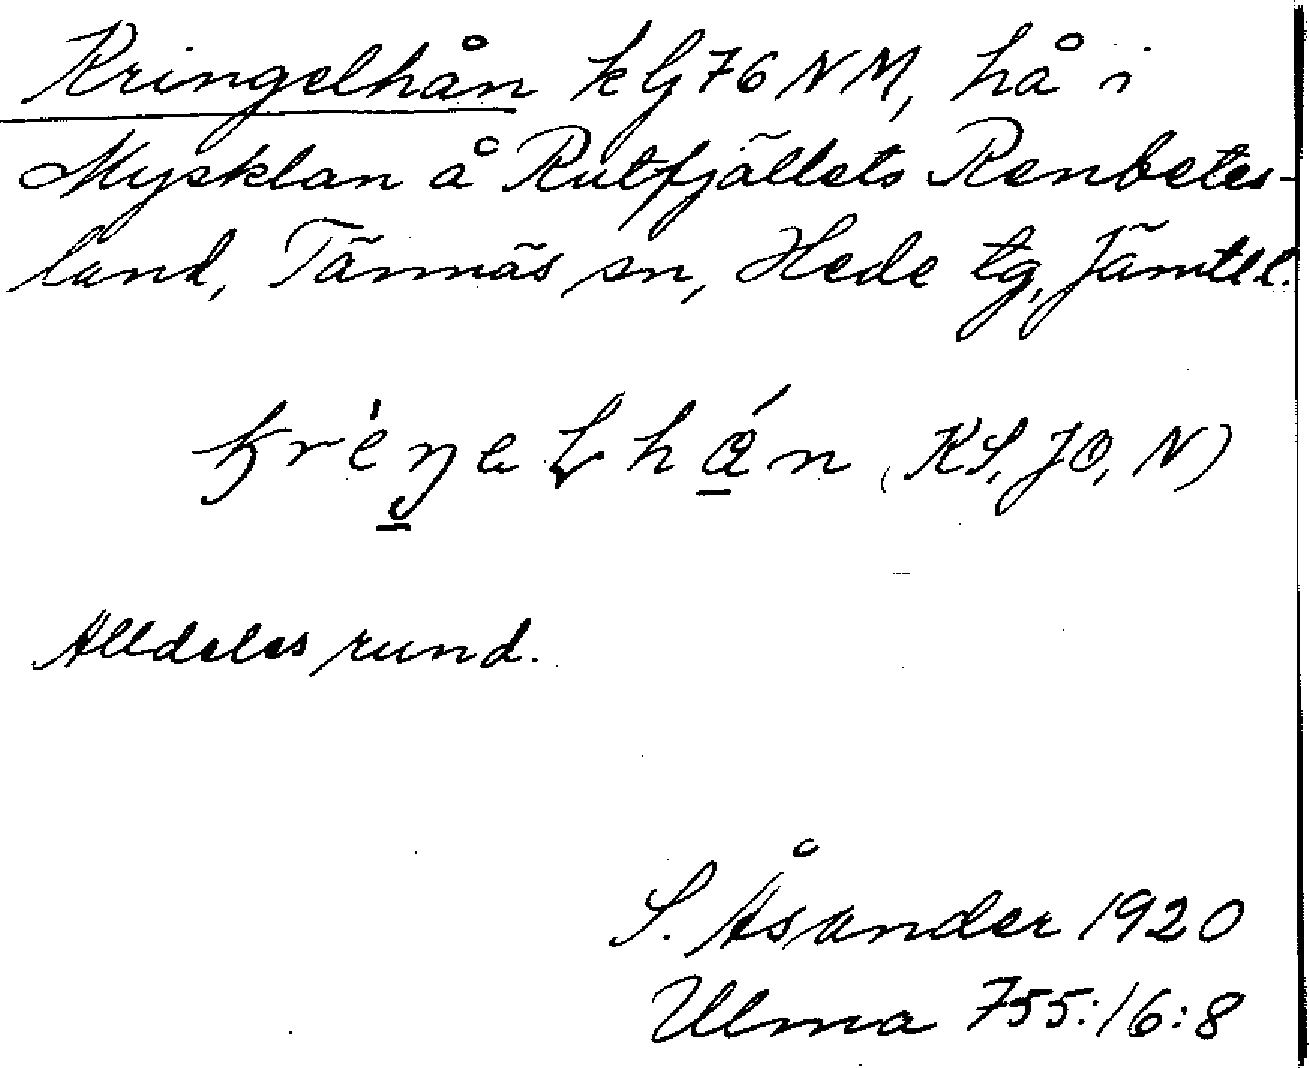 Kringelhån k G 76 NM, hå i
Mysklan å Rutfjällets Renbetes-
land, Tännäs sn, Hede tg, Jämtl l.
krèŋelhán (KS, JO, N)
Alldeles rund.
S. Åsander 1920
Ulma 755:16:8